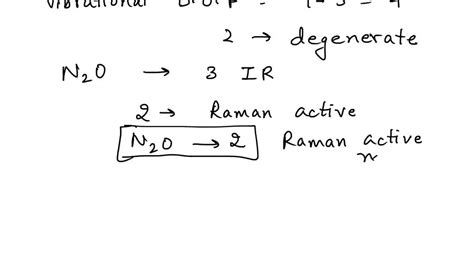 Vibrational D.O.F = 9 - 5 = 4
2 → degenerate
N₂O → 3 IR
2 → Raman active
N₂O → 2 Raman active
n